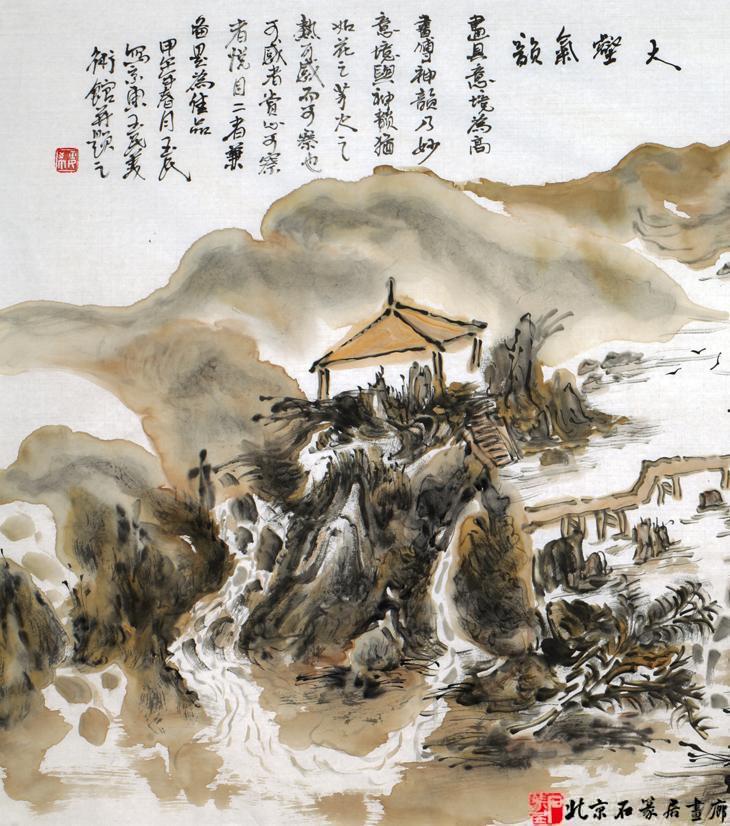 大壑氣韻
畫具意境為高
畫傳神韻乃妙
意境與神韻猶
如花之芳火之
熱可感而不可察也
可感者賞心可察
者悦目二者兼
備是為佳品
甲午年春月玉民
寫京東玉民美
術館并題之
北京石篆居畫廊